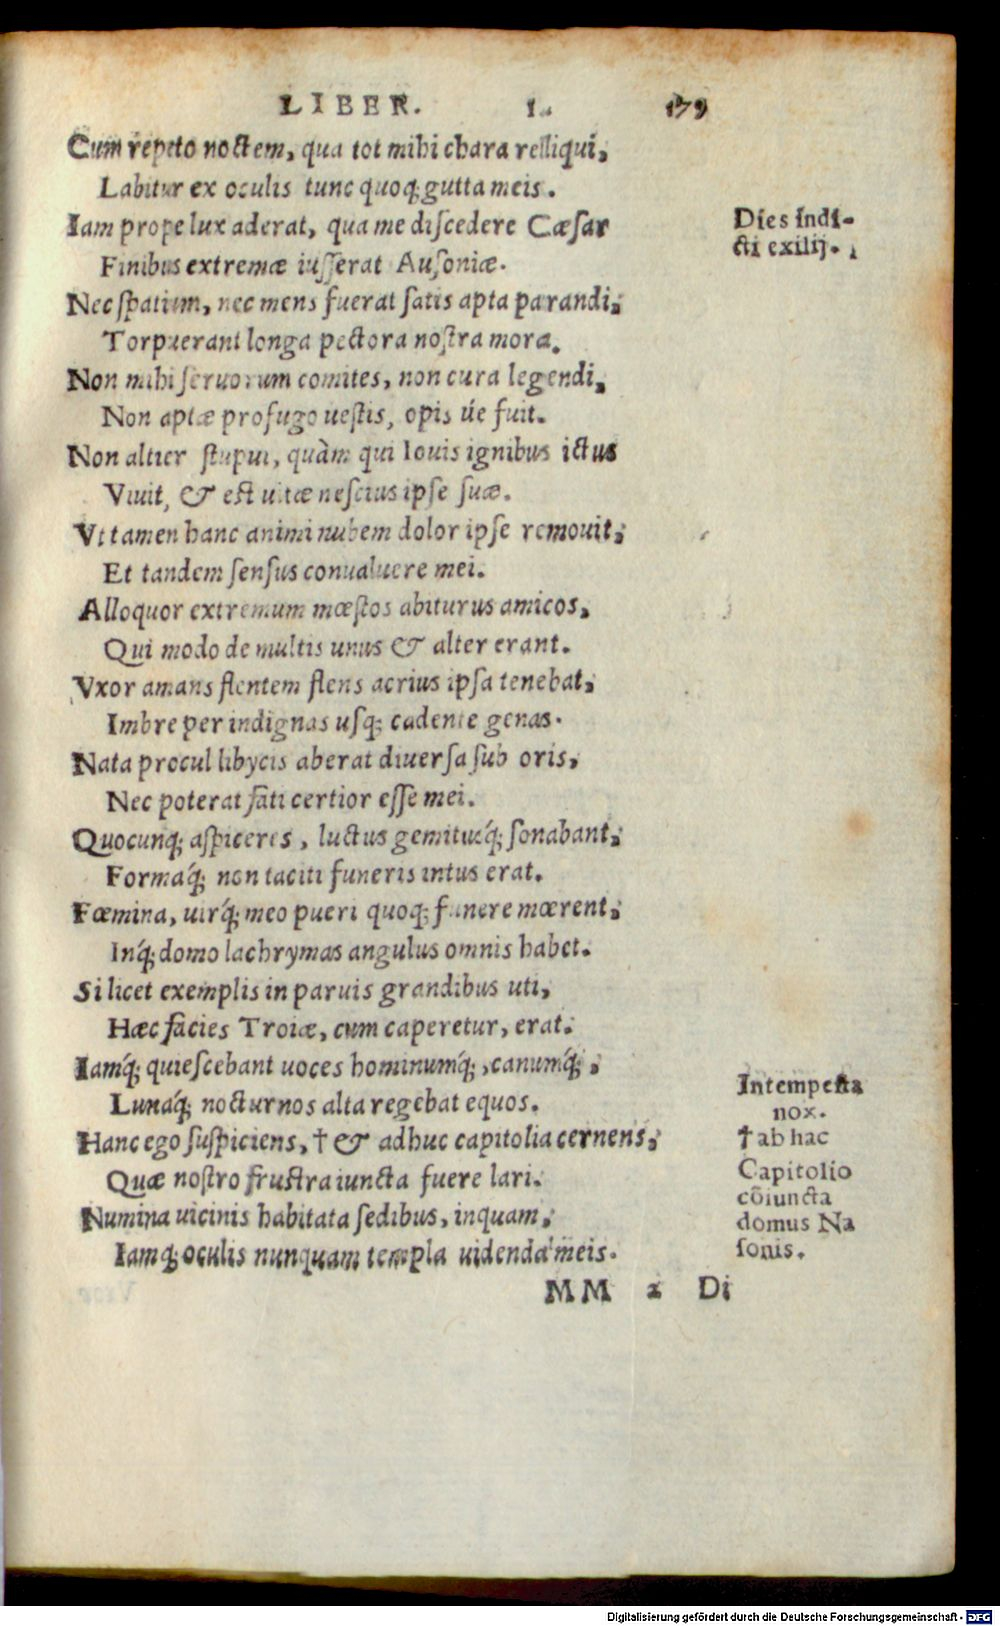 LIBER. I. 179
Cum repeto noctem, qua tot mihi chara relliqui,
Labitur ex oculis tunc quoq; gutta meis.
Iam prope lux aderat, qua me discedere Cæsar
Finibus extremæ iusserat Ausoniæ.
Nec spatium, nec mens fuerat satis apta parandi;
Torpuerant longa pectora nostra mora.
Non mihi seruorum comites, non cura legendi,
Non aptæ profugo uestis, opis úe fuit.
Non aliter stupui, quàm qui Iouis ignibus ictus
Viuit, & est uitæ nescius ipse suæ.
Vt tamen hanc animi nubem dolor ipse remouit;
Et tandem sensus conualuere mei.
Alloquor extremum mœstos abiturus amicos,
Qui modo de multis unus & alter erant.
Vxor amans flentem flens acrius ipsa tenebat;
Imbre per indignas usq; cadente genas.
Nata procul libycis aberat diuersa sub oris,
Nec poterat fati certior esse mei.
Quocunq; aspiceres, luctus gemitusq́; sonabant;
Formaq́; non taciti funeris intus erat.
Fœmina, uirq́; meo pueri quoq; funere mœrent;
Inq́; domo lachrymas angulus omnis habet.
Si licet exemplis in paruis grandibus uti,
Hæc facies Troiæ, cum caperetur, erat.
Iamq́; quiescebant uoces hominumq́;, canumq́;;
Lunaq́; nocturnos alta regebat equos.
Hanc ego suspiciens, † & adhuc capitolia cernens;
Quæ nostro frustra iuncta fuere lari.
Numina uicinis habitata sedibus, inquam;
Iamq; oculis nunquam templa uidenda meis.
MM 2 Di
Dies indi-
cti exilij.
Intempesta
nox.
† ab hac
Capitolio
cõiuncta
domus Na
sonis.
Digitalisierung gefördert durch die Deutsche Forschungsgemeinschaft - DFG